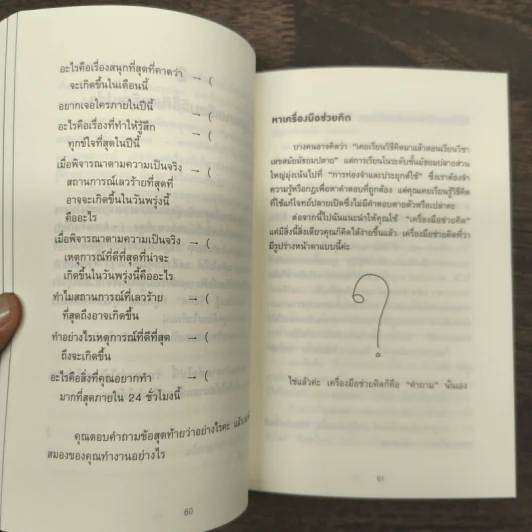 อะไรคือเรื่องสนุกที่สุดที่คาดว่า → (
จะเกิดขึ้นในเดือนนี้
อยากเจอใครภายในปีนี้ → (
อะไรคือเรื่องที่ทำให้รู้สึก → (
ทุกข์ใจที่สุดในปีนี้
เมื่อพิจารณาตามความเป็นจริง → (
สถานการณ์เลวร้ายที่สุดที่
อาจจะเกิดขึ้นในวันพรุ่งนี้
คืออะไร
เมื่อพิจารณาตามความเป็นจริง → (
เหตุการณ์ที่ดีที่สุดที่น่าจะ
เกิดขึ้นในวันพรุ่งนี้คืออะไร
ทำไมสถานการณ์ที่เลวร้าย → (
ที่สุดถึงอาจเกิดขึ้น
ทำอย่างไรเหตุการณ์ที่ดีที่สุด → (
ถึงจะเกิดขึ้น
อะไรคือสิ่งที่คุณอยากทำ → (
มากที่สุดภายใน 24 ชั่วโมงนี้
คุณตอบคำถามข้อสุดท้ายว่าอย่างไรคะ
สมองของคุณทำงานอย่างไร
60
หาเครื่องมือช่วยคิด
บางคนอาจคิดว่า “เคยเรียนวิธีคิดมาแล้วตอนเรียนวิชา
เลขสมัยมัธยมปลาย” แต่การเรียนในระดับชั้นมัธยมปลายส่วน
ใหญ่มุ่งเน้นไปที่ “การท่องจำและประยุกต์ใช้” ซึ่งเราต้องจำ
ความรู้หรือกฎเพื่อหาคำตอบที่ถูกต้อง แต่คุณเคยเรียนรู้วิธีคิด
ที่ใช้แก้โจทย์ปลายเปิดซึ่งไม่มีคำตอบตายตัวหรือเปล่าคะ
ต่อจากนี้ไปฉันแนะนำให้คุณใช้ “เครื่องมือช่วยคิด”
แค่มีสิ่งนี้สิ่งเดียวคุณก็คิดได้ง่ายขึ้นแล้ว เครื่องมือช่วยคิดที่ว่า
มีรูปร่างหน้าตาแบบนี้ค่ะ
?
ใช่แล้วค่ะ เครื่องมือช่วยคิดก็คือ “คำถาม” นั่นเอง
61